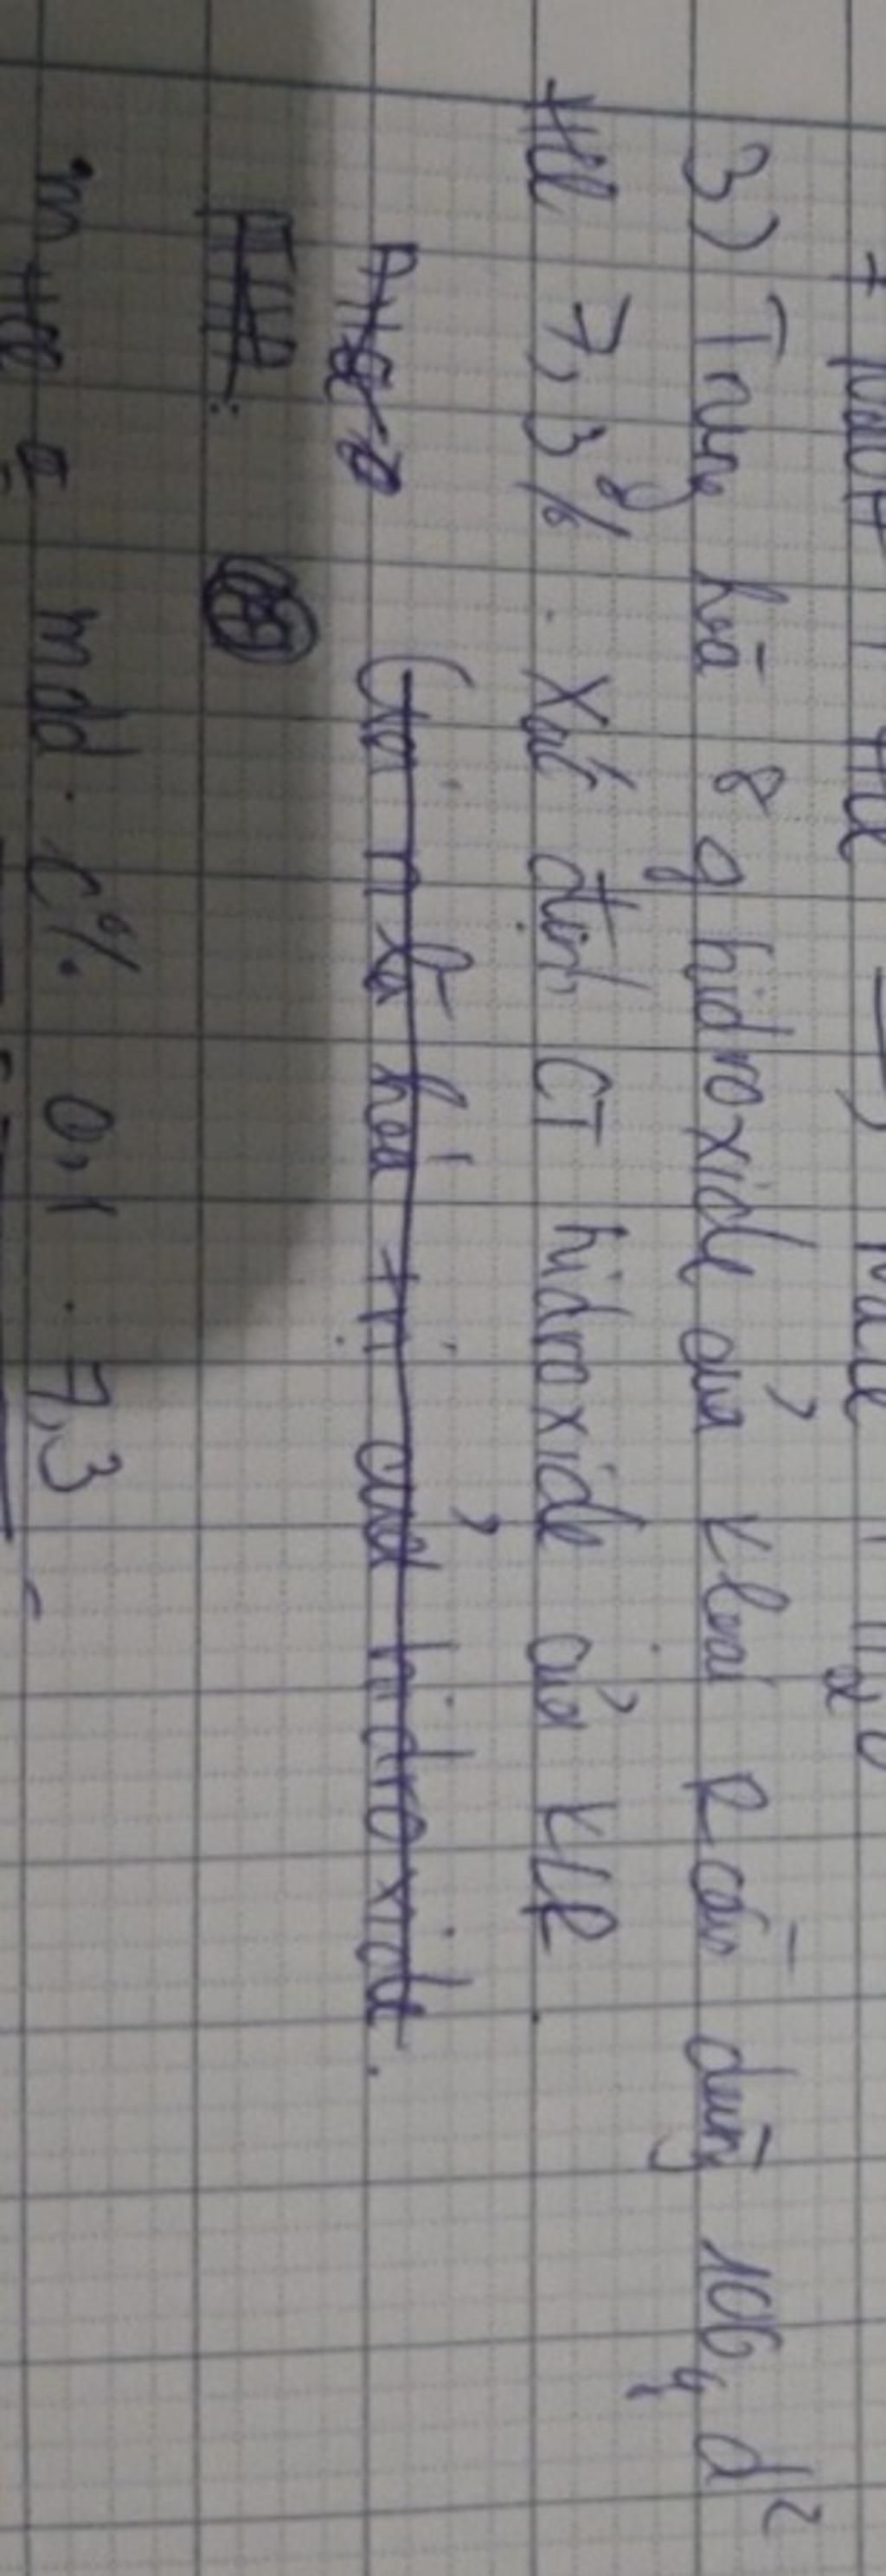 + NaOH + HCl → NaCl + H2O
3) Trung hoà 8 g hidroxide của kloại R cần dùng 100g d²
HCl 7,3%. Xác định CT hidroxide của KLR.
Gọi n là hoá trị của hidroxide.
mHCl = mdd . C% 0,1 . 7,3